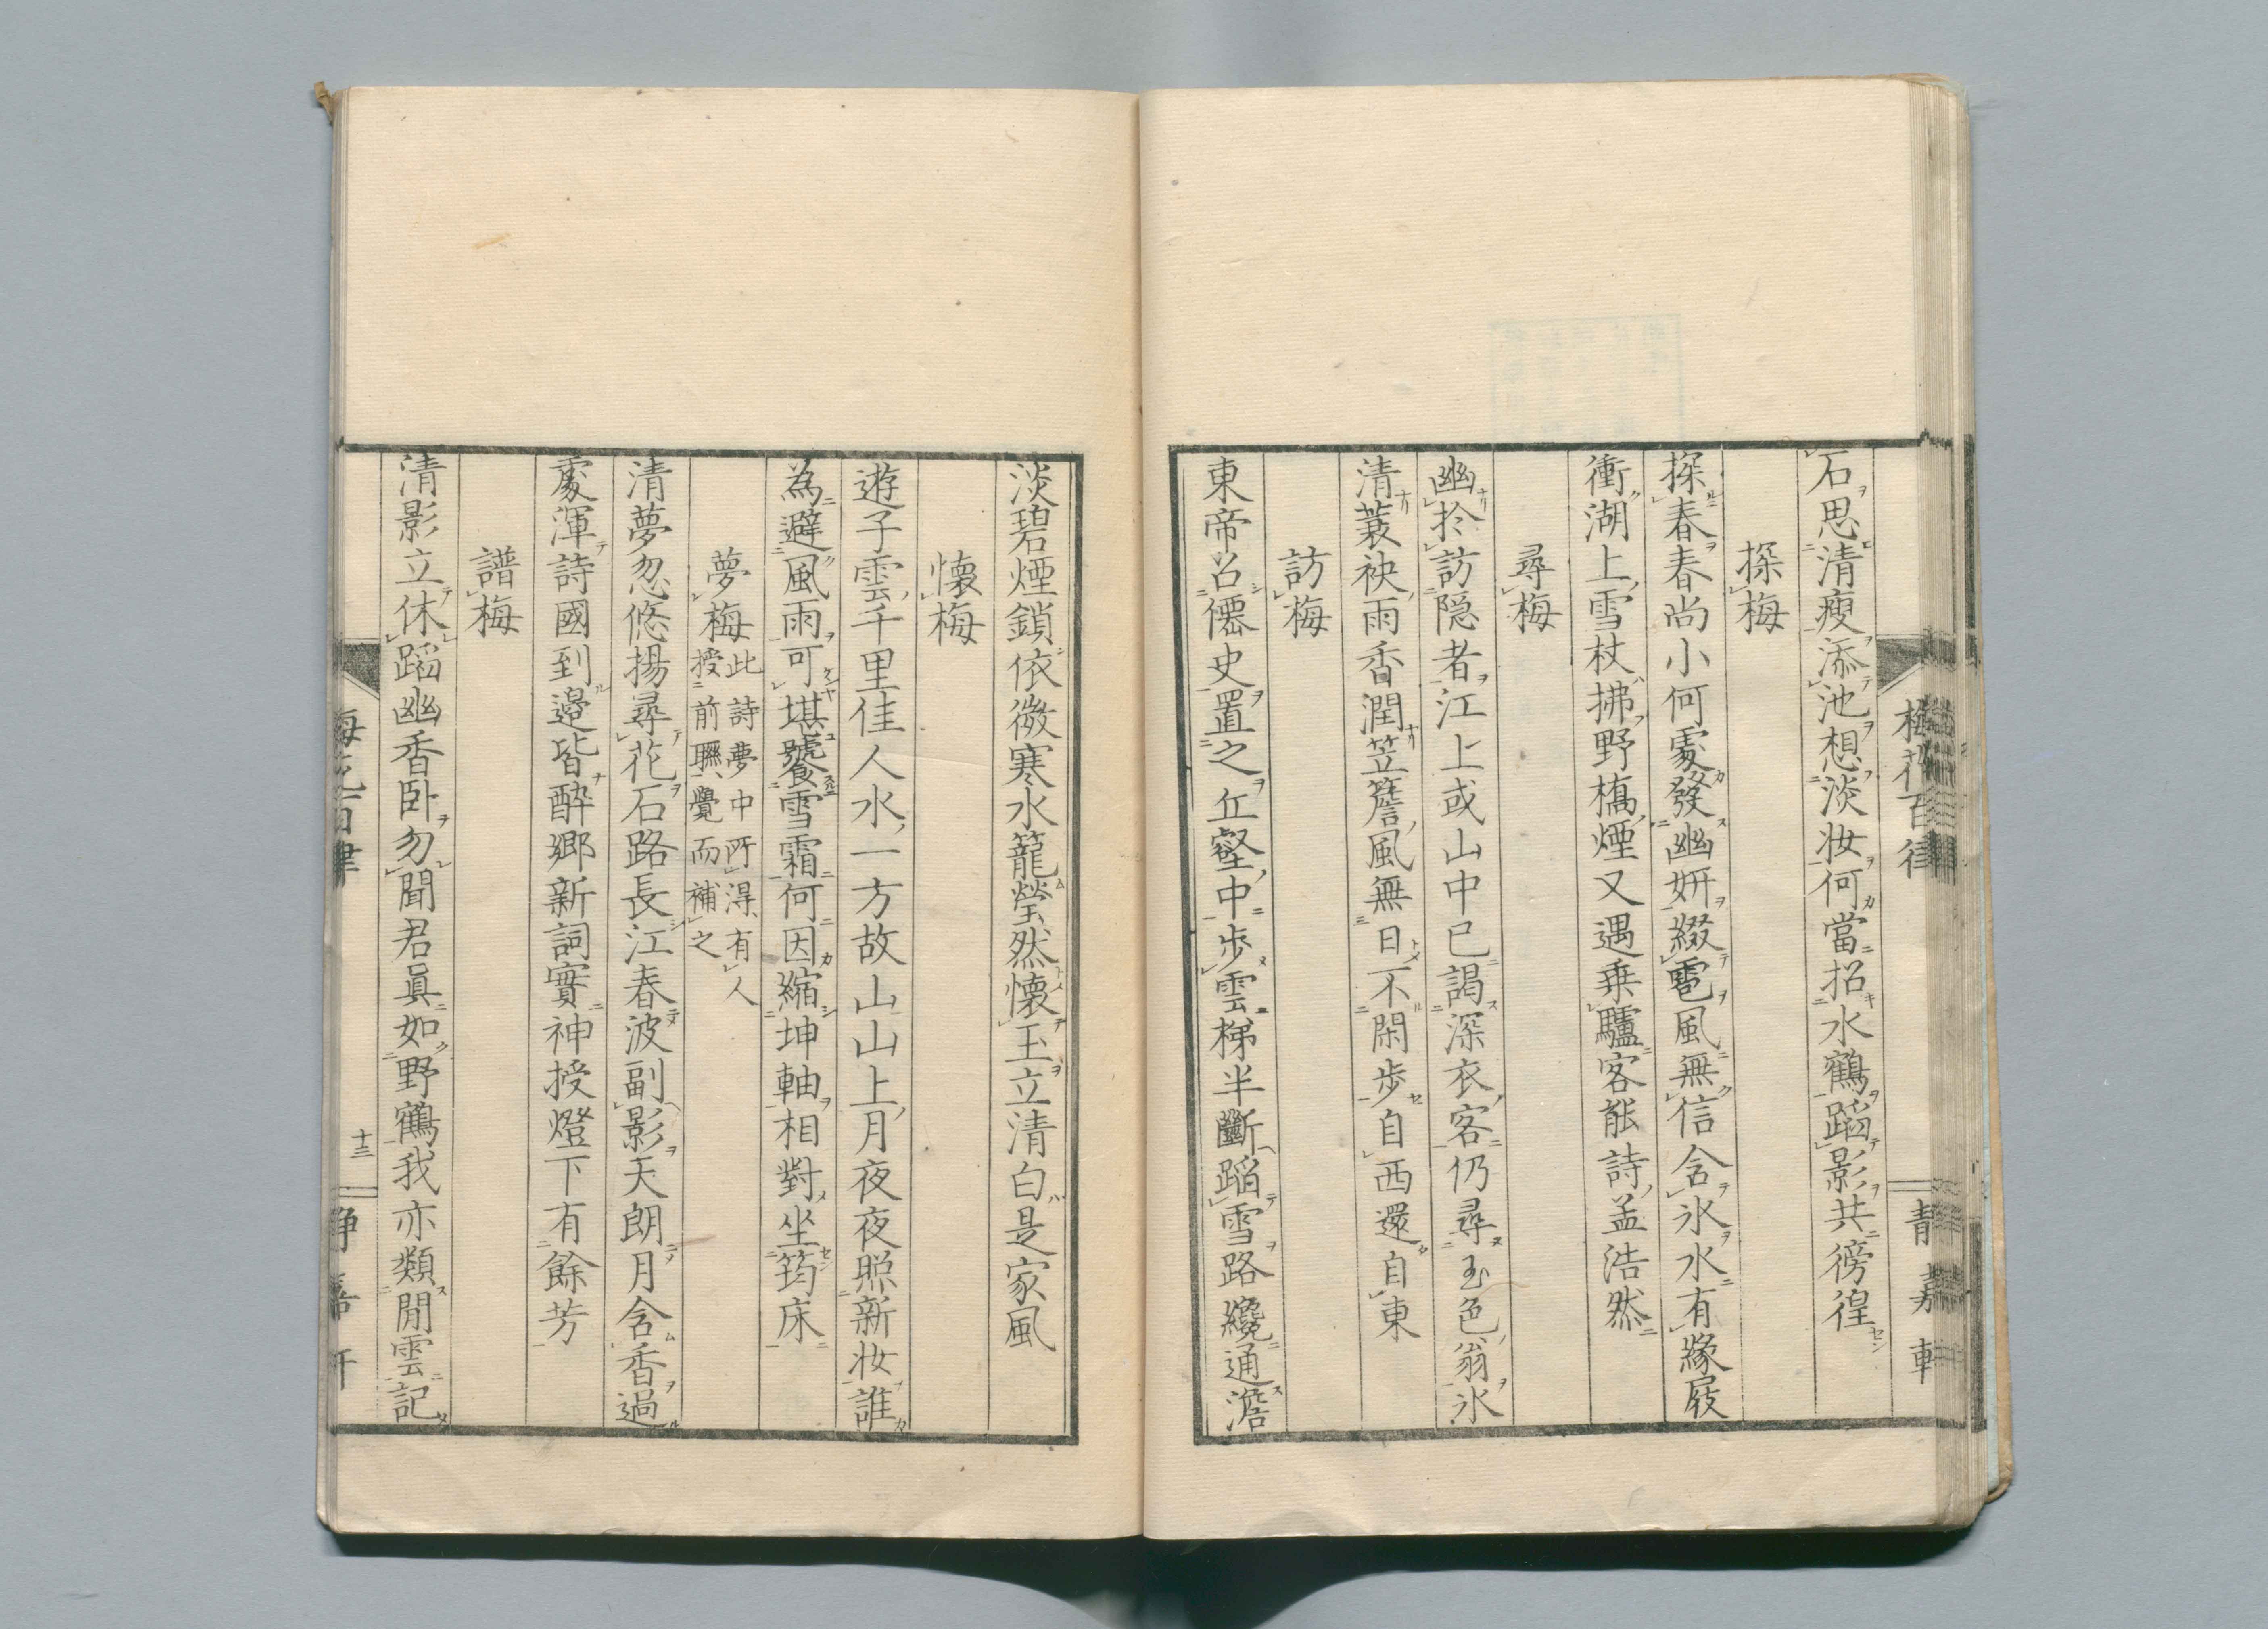 石思清瘦添池想淡妝何當招水鶴蹈影共徬徨
探梅
探春春尚小何處發幽妍綴雹風無信含氷水有緣屐
衝湖上雪杖拂野橋煙又遇乗驢客能詩孟浩然
尋梅
幽於訪隠者江上或山中已謁深衣客仍尋玉色翁氷
清蓑袂雨香潤笠簷風無日不閑歩自西還自東
訪梅
東帝召僊史置之丘壑中歩雲梯半斷蹈雪路纔通澹
梅花百律
靜嘉軒
淡碧煙鎖依微寒水籠瑩然懐玉立清白是家風
懐梅
遊子雲千里佳人水一方故山山上月夜夜照新妝誰
為避風雨可堪饕雪霜何因縮坤軸相對坐筠床
夢梅
此詩夢中所得有人
授前聯覺而補之
清夢忽悠揚尋花石路長江春波副影天朗月含香過
處渾詩國到邉皆酔郷新詞實神授燈下有餘芳
譜梅
清影立休蹈幽香卧勿聞君眞如野鶴我亦類閒雲記
梅花百律
十三
靜嘉軒